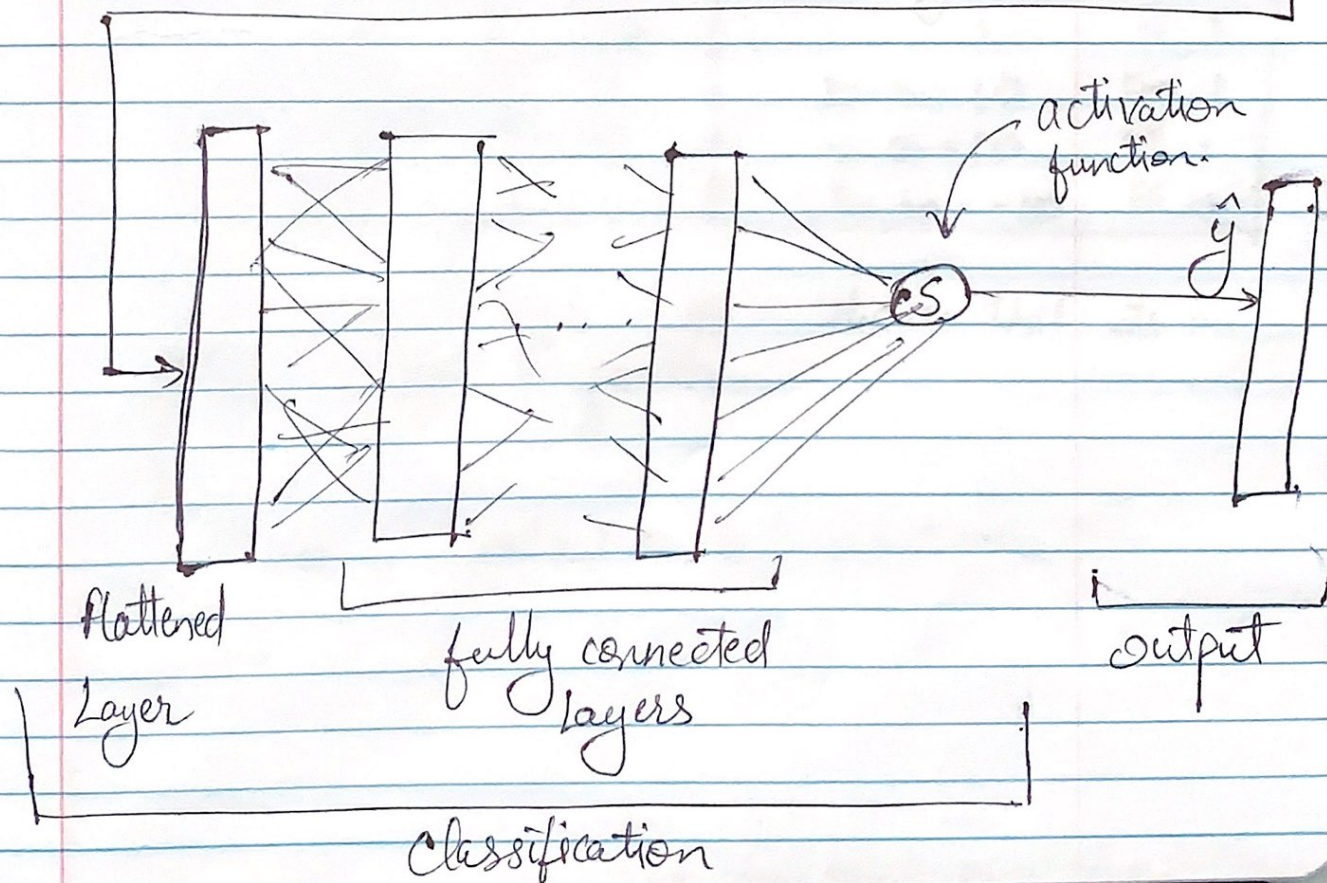 activation
function.
ŷ
S
flattened
Layer
fully connected
layers
output
Classification